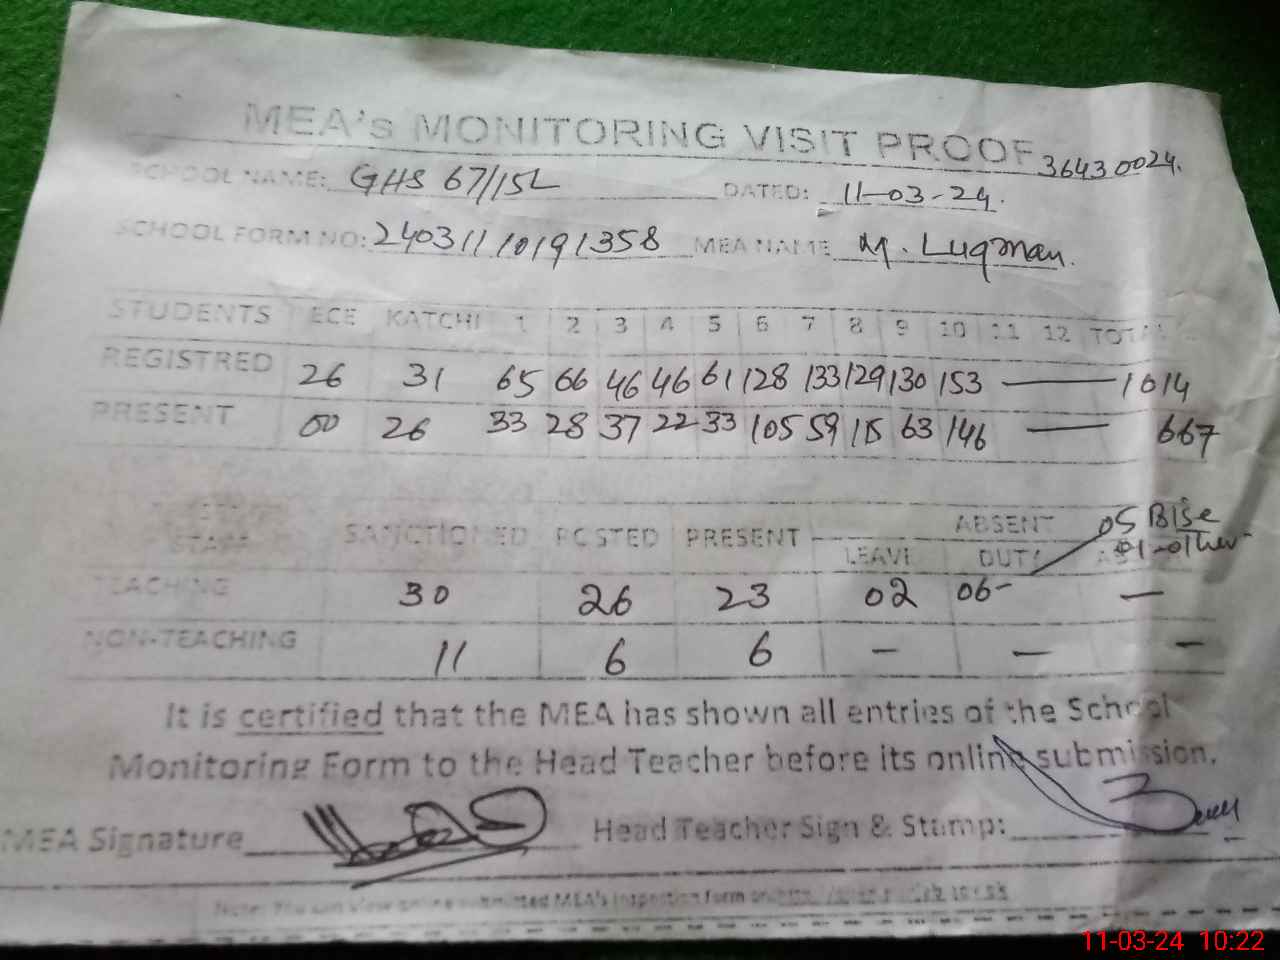 MEA's MONITORING VISIT PROOF 36430024.
SCHOOL NAME: GHS 67/15L DATED: 11-03-24.
SCHOOL FORM NO: 24031110191358 MEA NAME M. Luqman.
STUDENTS ECE KATCHI 1 2 3 4 5 6 7 8 9 10 11 12 TOTAL
REGISTRED 26 31 65 66 46 46 61 128 133 129 130 153 — 1014
PRESENT 00 26 33 28 37 22 33 105 59 115 63 146 — 667
STAFF SANCTIONED POSTED PRESENT ABSENT 05 BISe
LEAVE DUTY 01-other
TEACHING 30 26 23 02 06- —
NON-TEACHING 11 6 6 — — —
It is certified that the MEA has shown all entries of the School
Monitoring Form to the Head Teacher before its online submission.
MEA Signature Head Teacher Sign & Stamp:
Note: You can view online submitted MEA's inspection form on
11-03-24 10:22